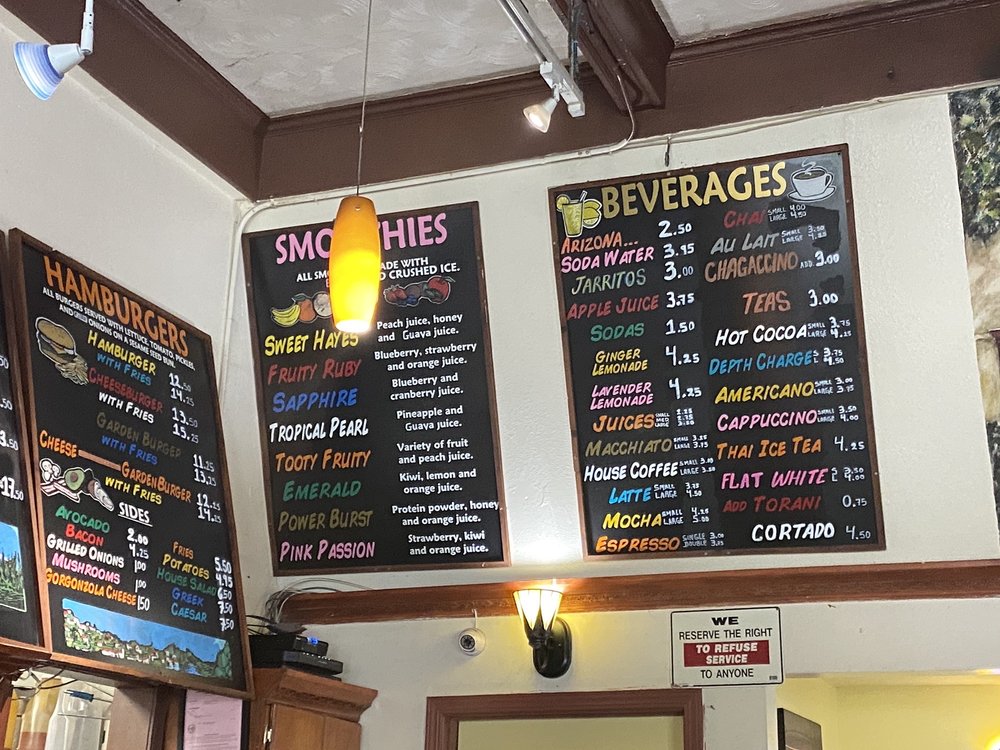 HAMBURGERS
ALL BURGERS SERVED WITH LETTUCE, TOMATO, PICKLES
AND GRILLED ONIONS ON A SESAME SEED BUN.
HAMBURGER 12.50
WITH FRIES 14.25
CHEESEBURGER 13.50
WITH FRIES 15.25
GARDEN BURGER 11.25
WITH FRIES 13.25
CHEESE GARDENBURGER 12.25
WITH FRIES 14.25
SIDES
AVOCADO 2.00
BACON 4.25
GRILLED ONIONS 1.00
MUSHROOMS 1.00
GORGONZOLA CHEESE 1.50
FRIES 5.50
POTATOES 4.95
HOUSE SALAD 6.50
GREEK 7.50
CAESAR 7.50
SMOOTHIES
ALL SMO ADE WITH
D CRUSHED ICE.
SWEET HAYES Peach juice, honey
and Guaya juice.
FRUITY RUBY Blueberry, strawberry
and orange juice.
SAPPHIRE Blueberry and
cranberry juice.
TROPICAL PEARL Pineapple and
Guava juice.
TOOTY FRUITY Variety of fruit
and peach juice.
EMERALD Kiwi, lemon and
orange juice.
POWER BURST Protein powder, honey
and orange juice.
PINK PASSION Strawberry, kiwi
and orange juice.
BEVERAGES
ARIZONA... 2.50
SODA WATER 3.95
JARRITOS 3.00
APPLE JUICE 3.75
SODAS 1.50
GINGER
LEMONADE 4.25
LAVENDER
LEMONADE 4.25
JUICES
MACCHIATO SMALL 3.25
LARGE 3.75
HOUSE COFFEE SMALL 3.00
LARGE 3.50
LATTE SMALL 3.75
LARGE 4.50
MOCHA SMALL 4.25
LARGE 5.00
ESPRESSO SINGLE 3.00
DOUBLE 3.25
CHAI SMALL 4.00
LARGE 4.50
AU LAIT SMALL 3.50
LARGE 4.25
CHAGACCINO ADD 3.00
TEAS 3.00
HOT COCOA SMALL 3.75
LARGE 4.25
DEPTH CHARGE S 3.75
L 4.50
AMERICANO SMALL 3.00
LARGE 3.50
CAPPUCCINO SMALL 3.50
LARGE 4.00
THAI ICE TEA 4.25
FLAT WHITE S 3.50
L 4.50
ADD TORANI 0.75
CORTADO 4.50
WE
RESERVE THE RIGHT
TO REFUSE
SERVICE
TO ANYONE